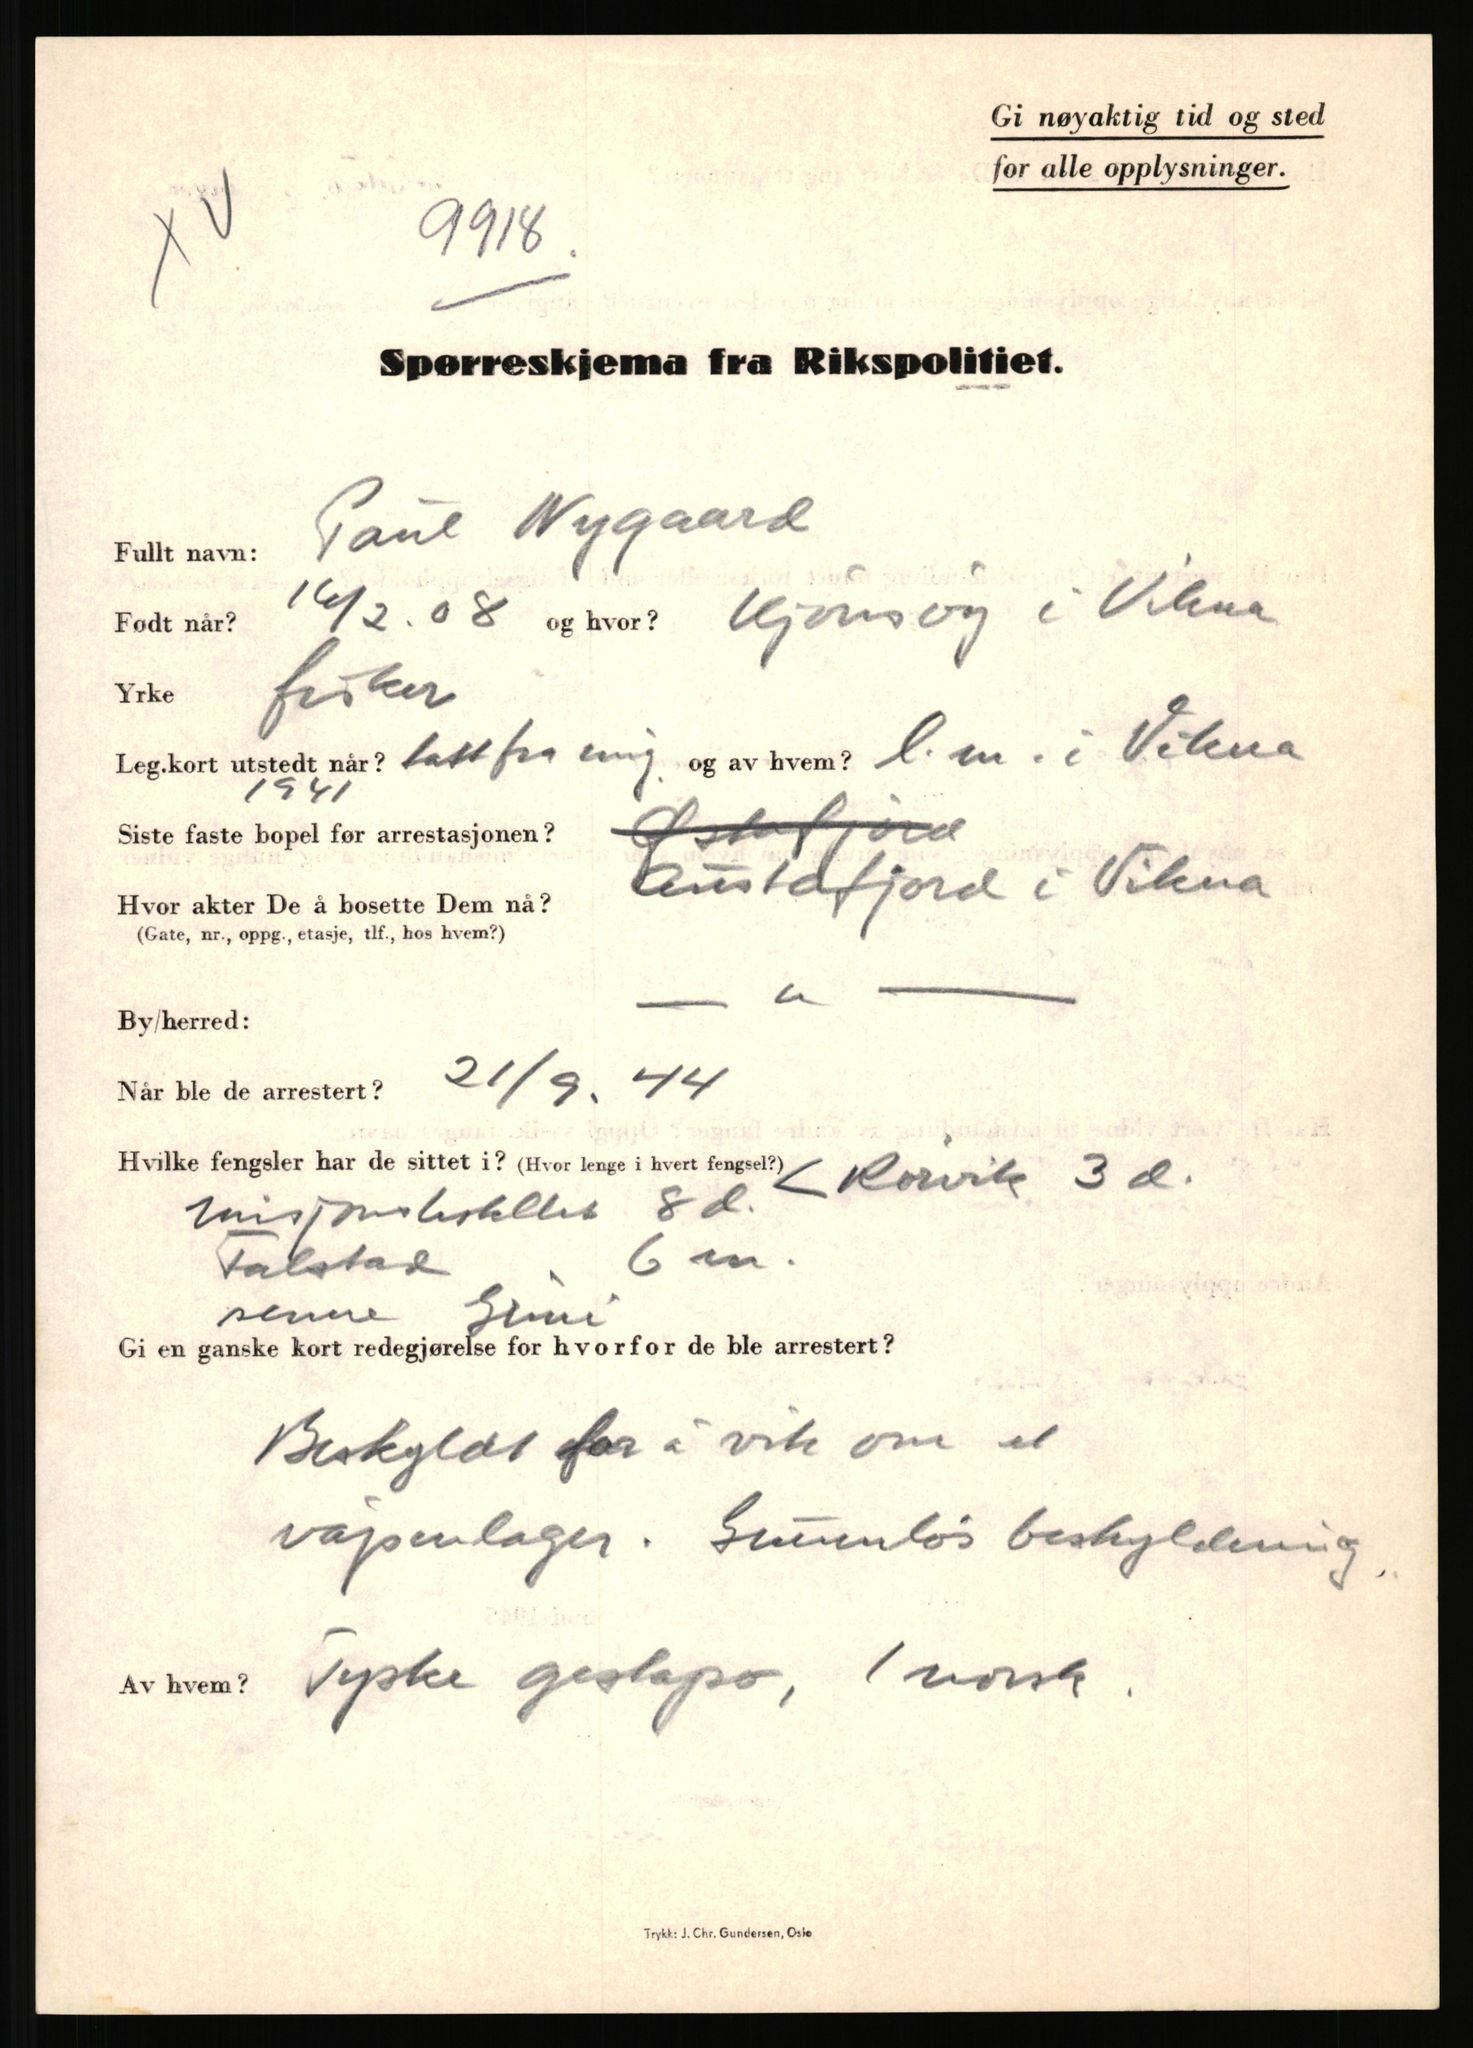 Gi nøyaktig tid og sted
for alle opplysninger.
X V
9918.
Spørreskjema fra Rikspolitiet.
Fullt navn: Paul Nygaard
Født når? 14/2.08 og hvor? Kjønsøy i Vikna
Yrke fisker
Leg.kort utstedt når? tatt fra mig og av hvem? l.m. i Vikna
1941
Siste faste bopel før arrestasjonen? Østafjord
Austafjord i Vikna
Hvor akter De å bosette Dem nå?
(Gate, nr., oppg., etasje, tlf., hos hvem?)
— " —
By/herred:
Når ble de arrestert? 21/9.44
Hvilke fengsler har de sittet i? (Hvor lenge i hvert fengsel?) < Rørvik 3 d.
misjonshotellet 8 d.
Falstad 6 m.
senere Grini
Gi en ganske kort redegjørelse for hvorfor de ble arrestert?
Beskyldt for å vite om et
våpenlager. Grunnløs beskyldning.
Av hvem? Tyske gestapo, 1 norsk.
Trykk: J. Chr. Gundersen, Oslo